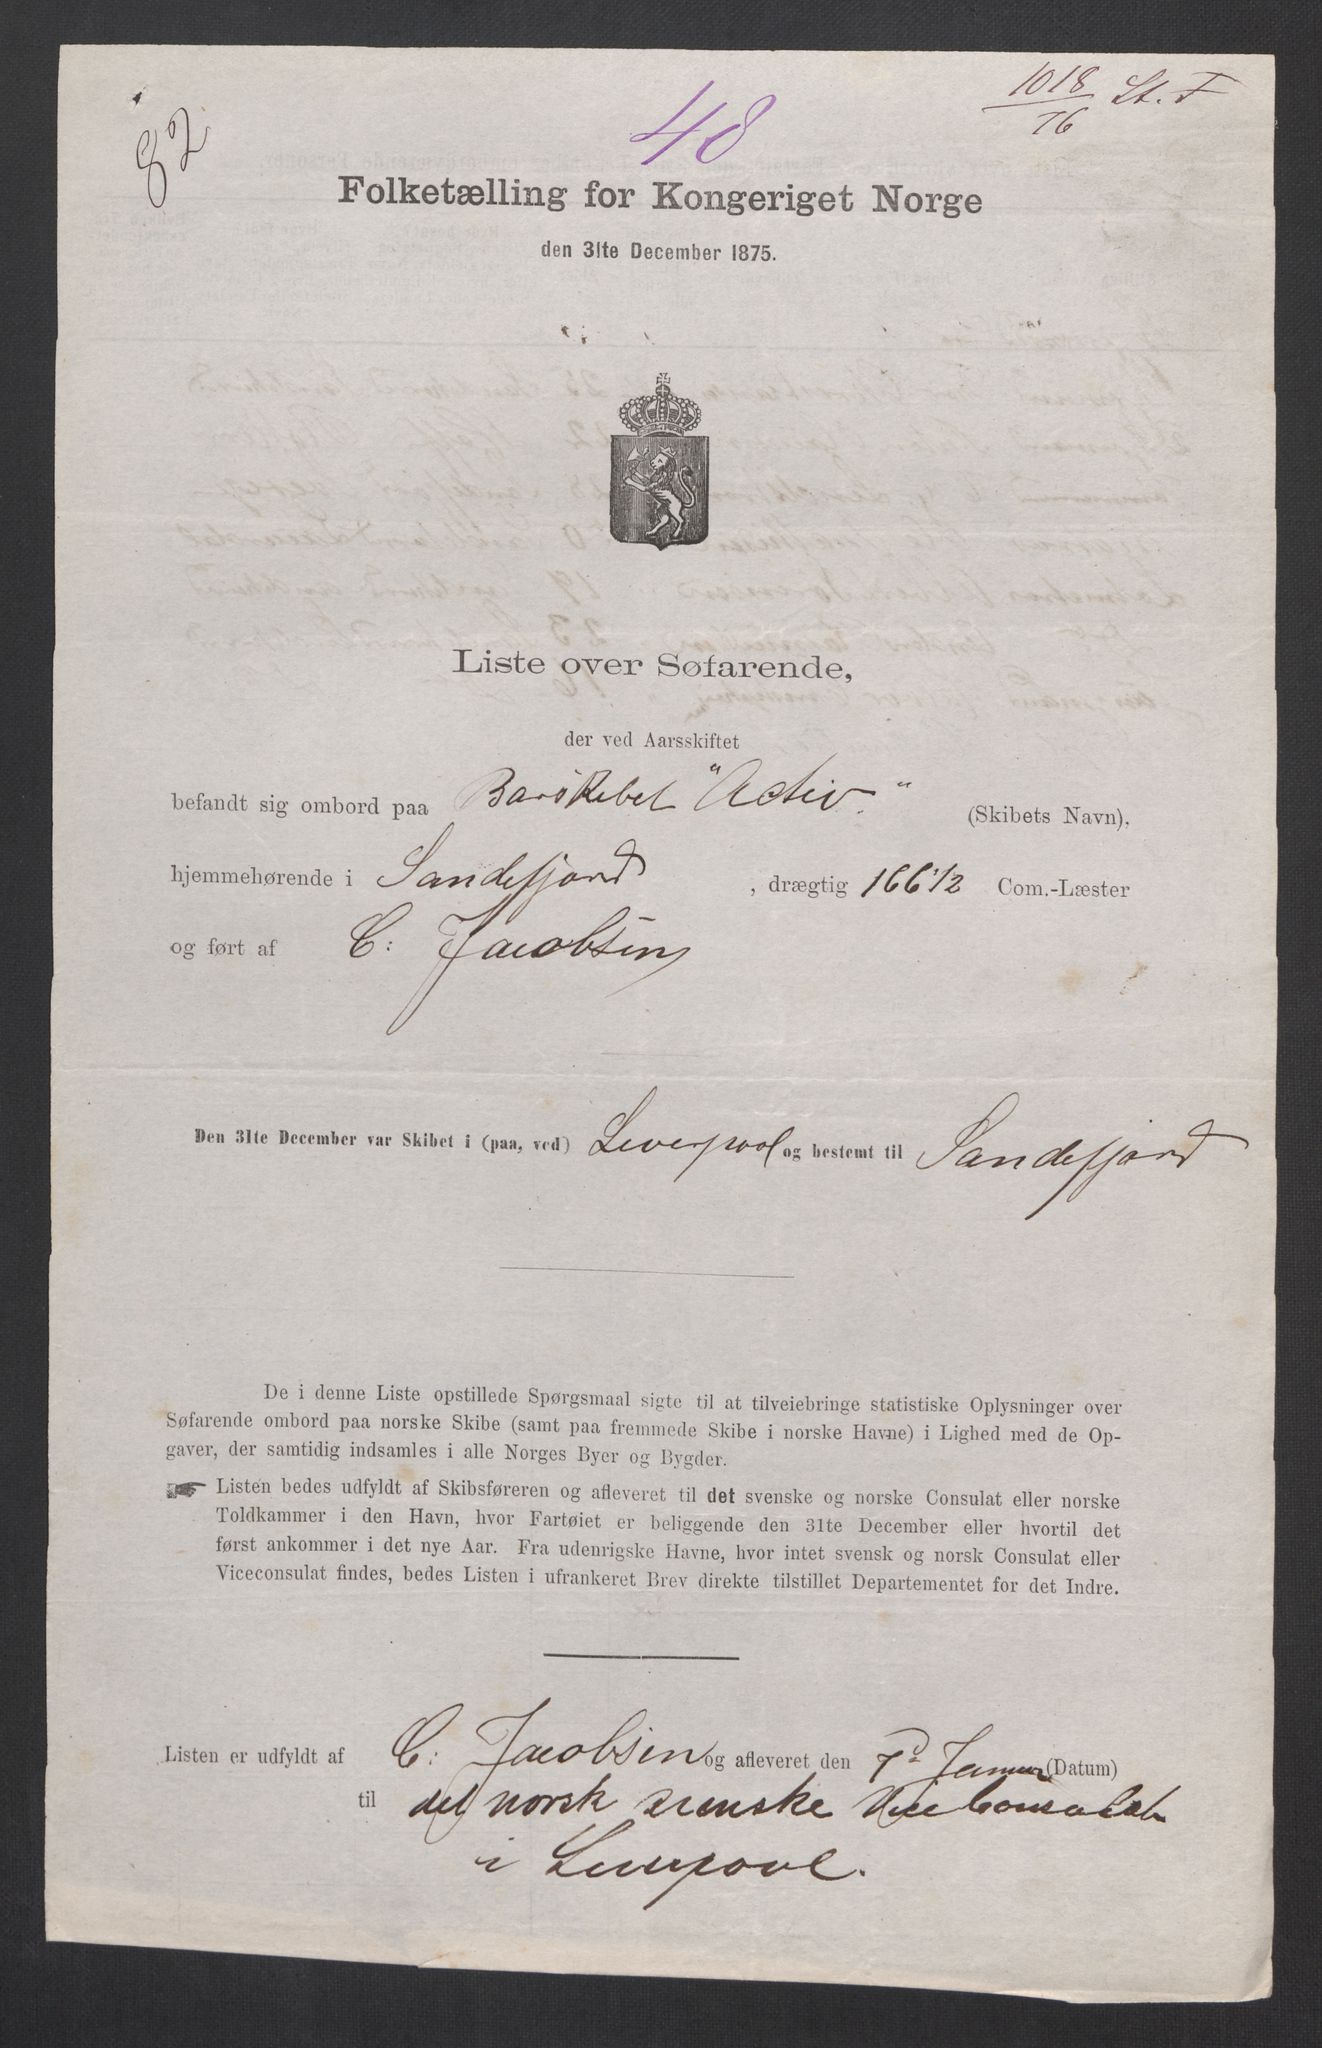 82
48
1018/76 St. F
Folketælling for Kongeriget Norge
den 31te December 1875.
Liste over Søfarende,
der ved Aarsskiftet
befandt sig ombord paa Barskibet "Activ." (Skibets Navn),
hjemmehørende i Sandefjord, drægtig 166 1/2 Com.-Læster
og ført af C: Jacobsen
Den 31te December var Skibet i (paa, ved) Liverpool og bestemt til Sandefjord
De i denne Liste opstillede Spørgsmaal sigte til at tilveiebringe statistiske Oplysninger over
Søfarende ombord paa norske Skibe (samt paa fremmede Skibe i norske Havne) i Lighed med de Op-
gaver, der samtidig indsamles i alle Norges Byer og Bygder.
Listen bedes udfyldt af Skibsføreren og afleveret til det svenske og norske Consulat eller norske
Toldkammer i den Havn, hvor Fartøiet er beliggende den 31te December eller hvortil det
først ankommer i det nye Aar. Fra udenrigske Havne, hvor intet svensk og norsk Consulat eller
Viceconsulat findes, bedes Listen i ufrankeret Brev direkte tilstillet Departementet for det Indre.
Listen er udfyldt af C: Jacobsen og afleveret den (Datum)
til det norsk svenske
i Liverpool.